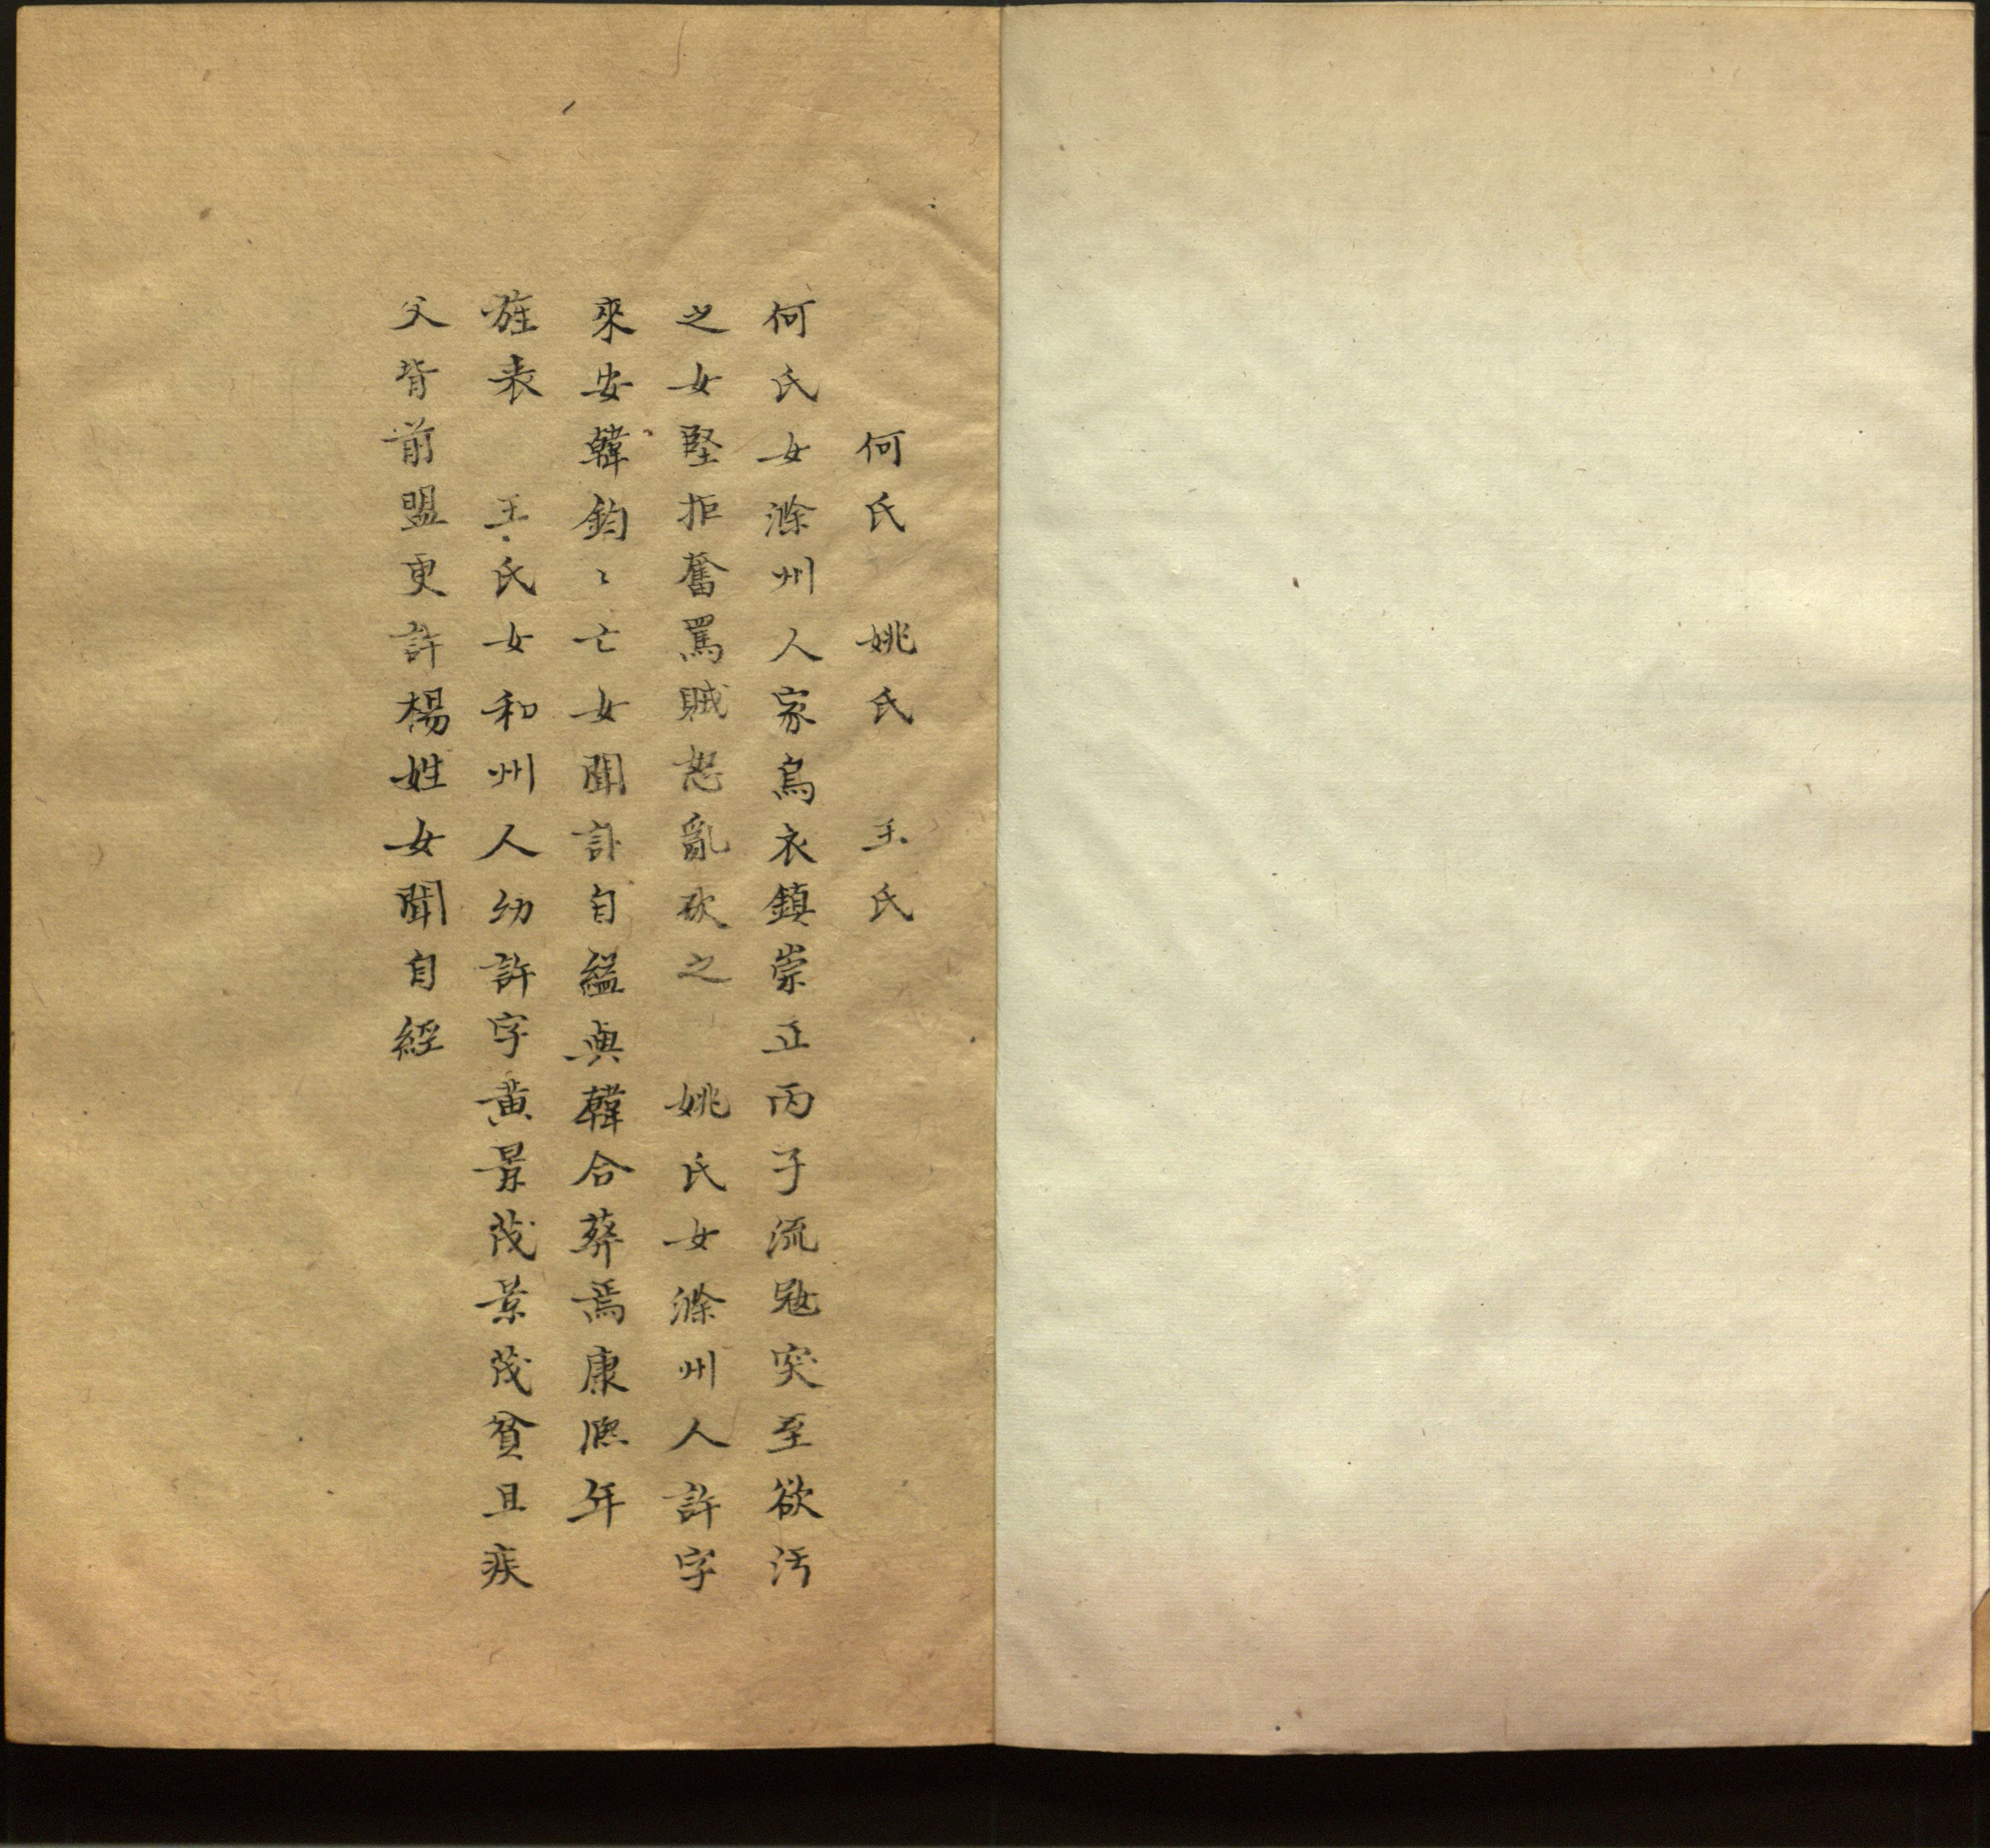 何氏　姚氏　王氏
何氏女滁州人家烏衣鎮崇正丙子流寇突至欲汚
之女堅拒奮罵賊怒亂砍之　姚氏女滁州人許字
來安韓鈞〻亡女聞訃自縊與韓合葬焉康熙年
旌表　王氏女和州人幼許字黄景茂景茂貧且疾
父背前盟更許楊姓女聞自經